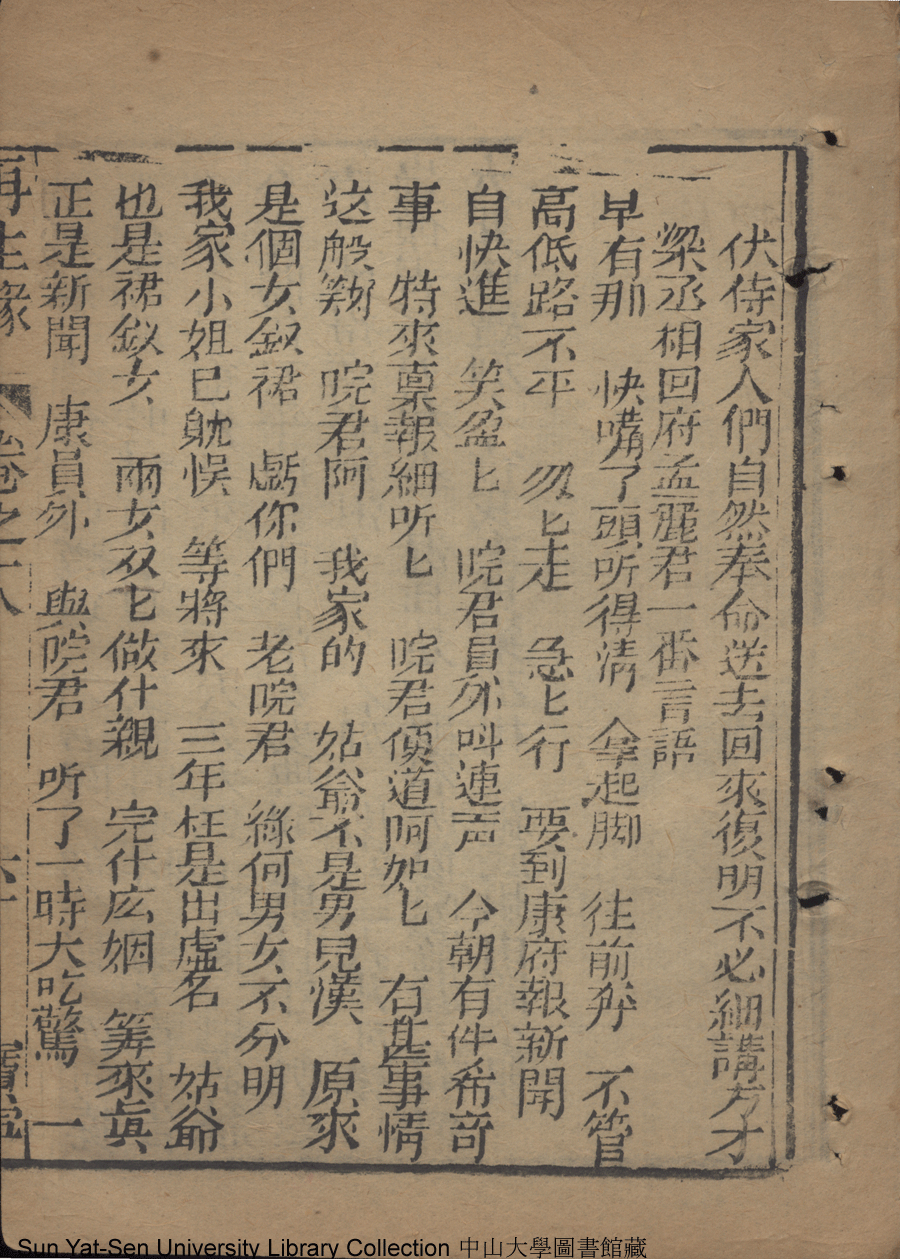 伏侍家人們自然奉命送去回來復明不必細講方才
梁丞相回府孟麗君一番言語
早有那　快嘴了頭听得清　拿起脚　往前奔　不管
高低路不平　匆匕走　急匕行　要到康府報新聞
自快進　笑盈匕　院君員外叫連声　今朝有件希奇
事　特來稟報細听匕　院君便道阿如匕　有甚事情
这般　院君阿　我家的　姑爺不是男兒漢　原來
是個女釵裙　虧你們　老院君　緣何男女不分明
我家小姐已躭悞　等將來　三年枉是出虛名　姑爺
也是裙釵女　兩女双匕做什親　完什庅姻　筭來真
正是新聞　康員外　與院君　听了一時大吃驚　一
再生緣　卷之十八
Sun Yat-Sen University Library Collection 中山大學圖書館藏